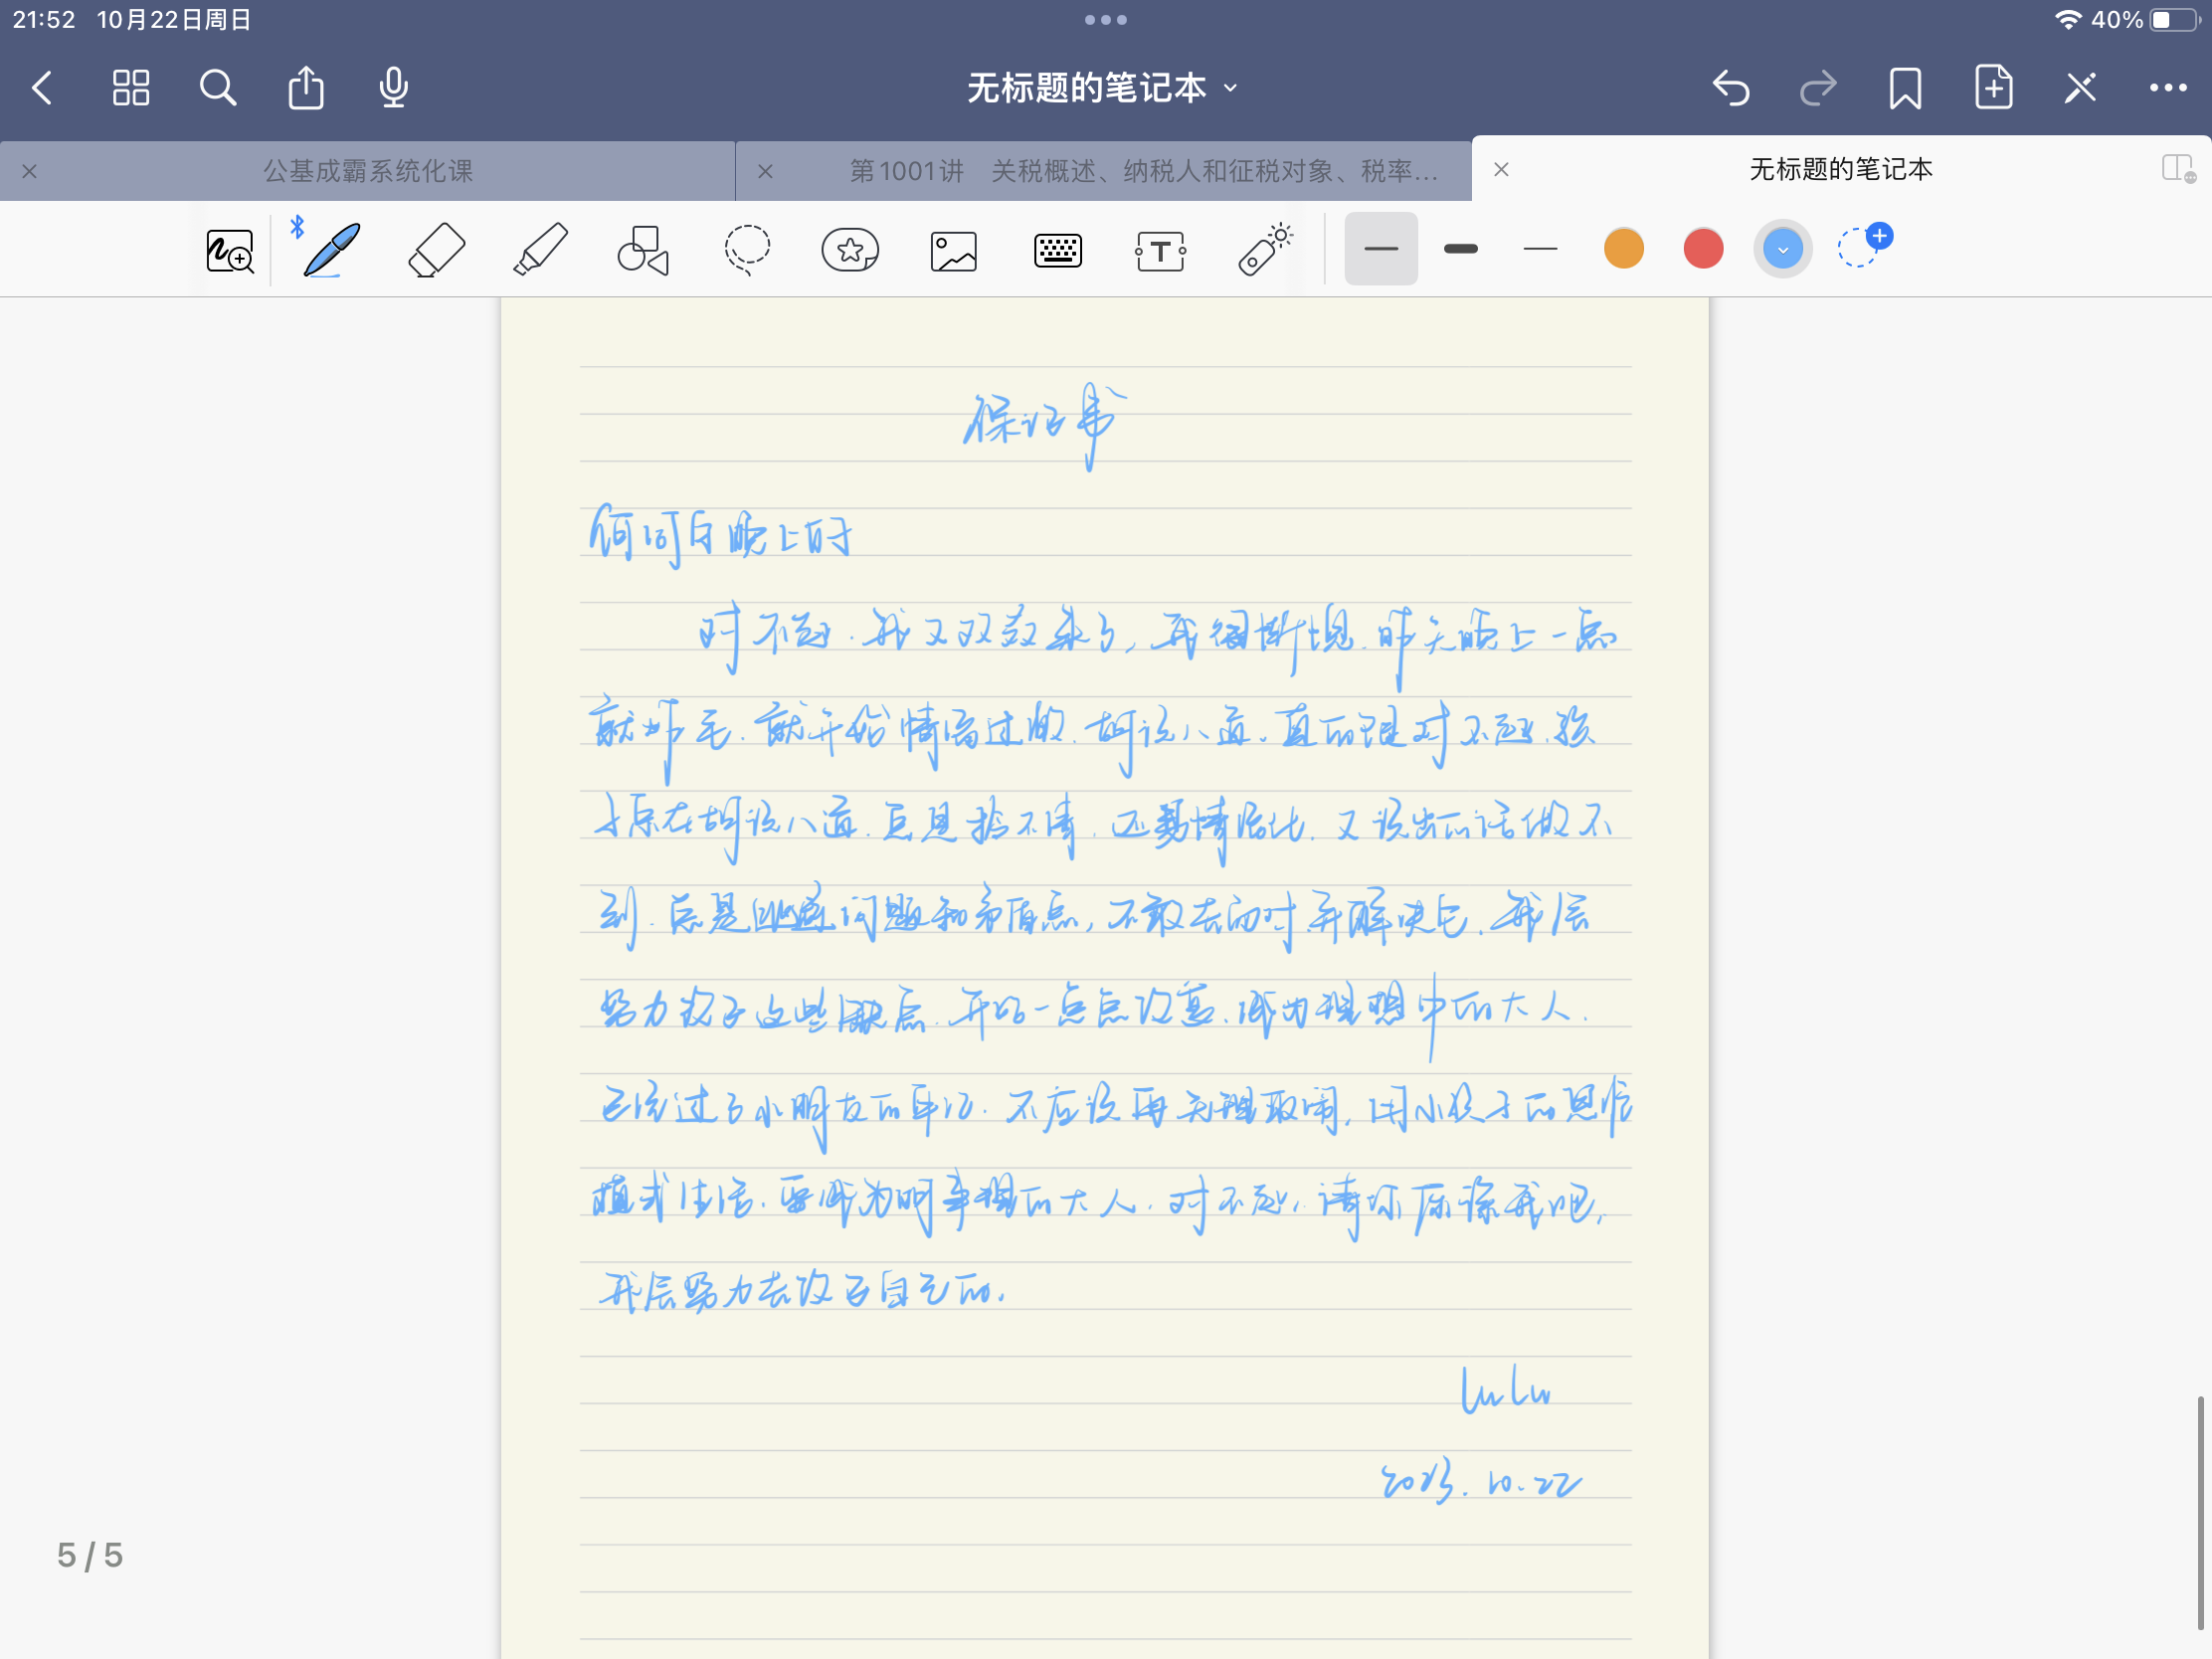 21:52 10月22日周日
40%
无标题的笔记本
公基成霸系统化课
第1001讲 关税概述、纳税人和征税对象、税率...
无标题的笔记本
保证书
晚上好
对不起.我又双叒来了,我很惭愧.昨天晚上一点
就炸毛.就开始情绪过激.胡说八道。真的是对不起.孩
子系在胡说八道.总是拎不清.还易情绪化.又说出的话做不
到.总是逃避问题和矛盾点,不敢去面对.并解决它.我会
努力改了这些缺点.开始一点点改善.成为理想中的大人.
已经过了小朋友的年纪.不应该再无理取闹,用小孩子的思维
模式生活.要成为明事理的大人.对不起,请你原谅我吧,
我会努力去改变自己的.
lulu
2023.10.22
5 / 5